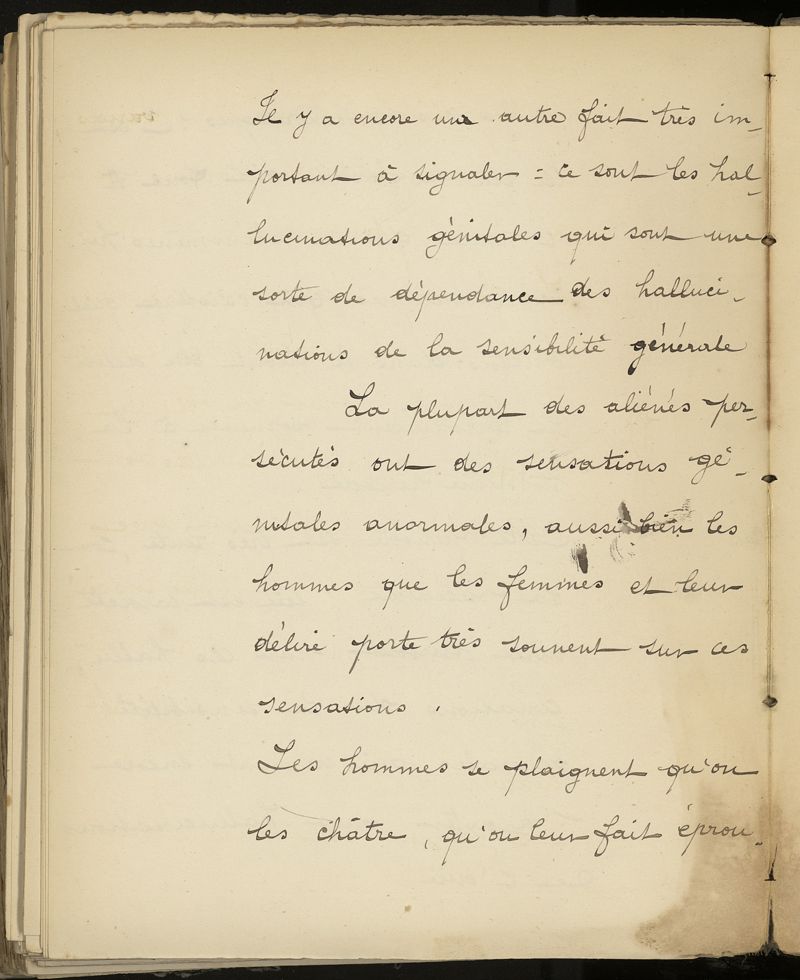 Il y a encore une autre fait très im-
portant à signaler = ce sont les hal-
lucinations génitales qui sont une
sorte de dépendance des halluci-
nations de la sensibilité générale
La plupart des aliénés per-
sécutés ont des sensations gé-
nitales anormales, aussi bien les
hommes que les femmes et leur
délire porte très souvent sur ces
sensations.
Les hommes se plaignent qu'on
les châtre, qu'on leur fait éprou-